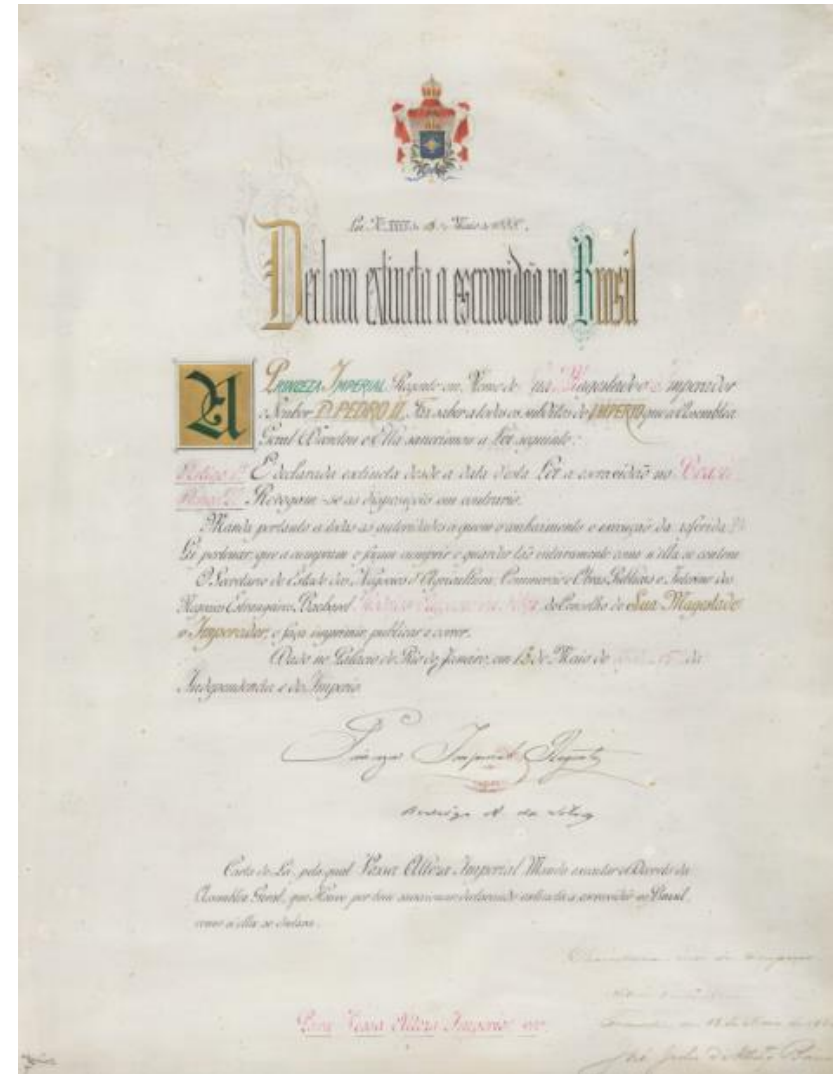 Lei Nº 3353 de 13 de Maio de 1888.
Declara extincta a escravidão no Brasil
A PRINCEZA IMPERIAL Regente em Nome de Sua Magestade o Imperador
o Senhor D. PEDRO II, Faz saber a todos os subditos do IMPERIO que a Assemblea
Geral Decretou e Ella sanccionou a Lei seguinte:
Artigo 1º É declarada extincta desde a data d'esta Lei a escravidão no Brazil
Artigo 2º Revogam-se as disposições em contrario.
Manda portanto a todas as autoridades a quem o conhecimento e execução da referida
Lei pertencer, que a cumpram e façam cumprir e guardar tão inteiramente como n'ella se contem
O Secretario de Estado dos Negocios d'Agricultura, Commercio e Obras Publicas e Interino dos
Negocios Estrangeiros, Bacharel do Conselho de Sua Magestade
o Imperador, o faça imprimir, publicar e correr.
Dado no Palacio do Rio de Janeiro, em 13 de Maio de da
Independencia e do Imperio
Princeza Imperial Regente
Rodrigo A. da Silva
Carta de Lei, pela qual Vossa Alteza Imperial Manda executar o Decreto da
Assemblea Geral, que Houve por bem sanccionar declarando extincta a escravidão no Brazil
como n'ella se declara.
Para Vossa Alteza Imperial ver